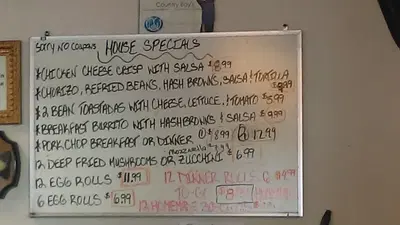 Country Boy's
Sorry No Coupons HOUSE SPECIALS
*CHICKEN CHEESE CRISP WITH SALSA $8.99
*CHORIZO, REFRIED BEANS, HASH BROWNS, SALSA & TORTILLA
*2 BEAN TOSTADAS WITH CHEESE, LETTUCE, & TOMATO $5.99
*BREAKFAST BURRITO WITH HASHBROWNS & SALSA $9.99
*PORK CHOP BREAKFAST OR DINNER ① $8.99 ② 12.99
mozzarella
12 DEEP FRIED MUSHROOMS OR ZUCCHINI $6.99
12 EGG ROLLS $11.99 12 DINNER ROLLS
6 EGG ROLLS $6.99 12 HOMEMADE